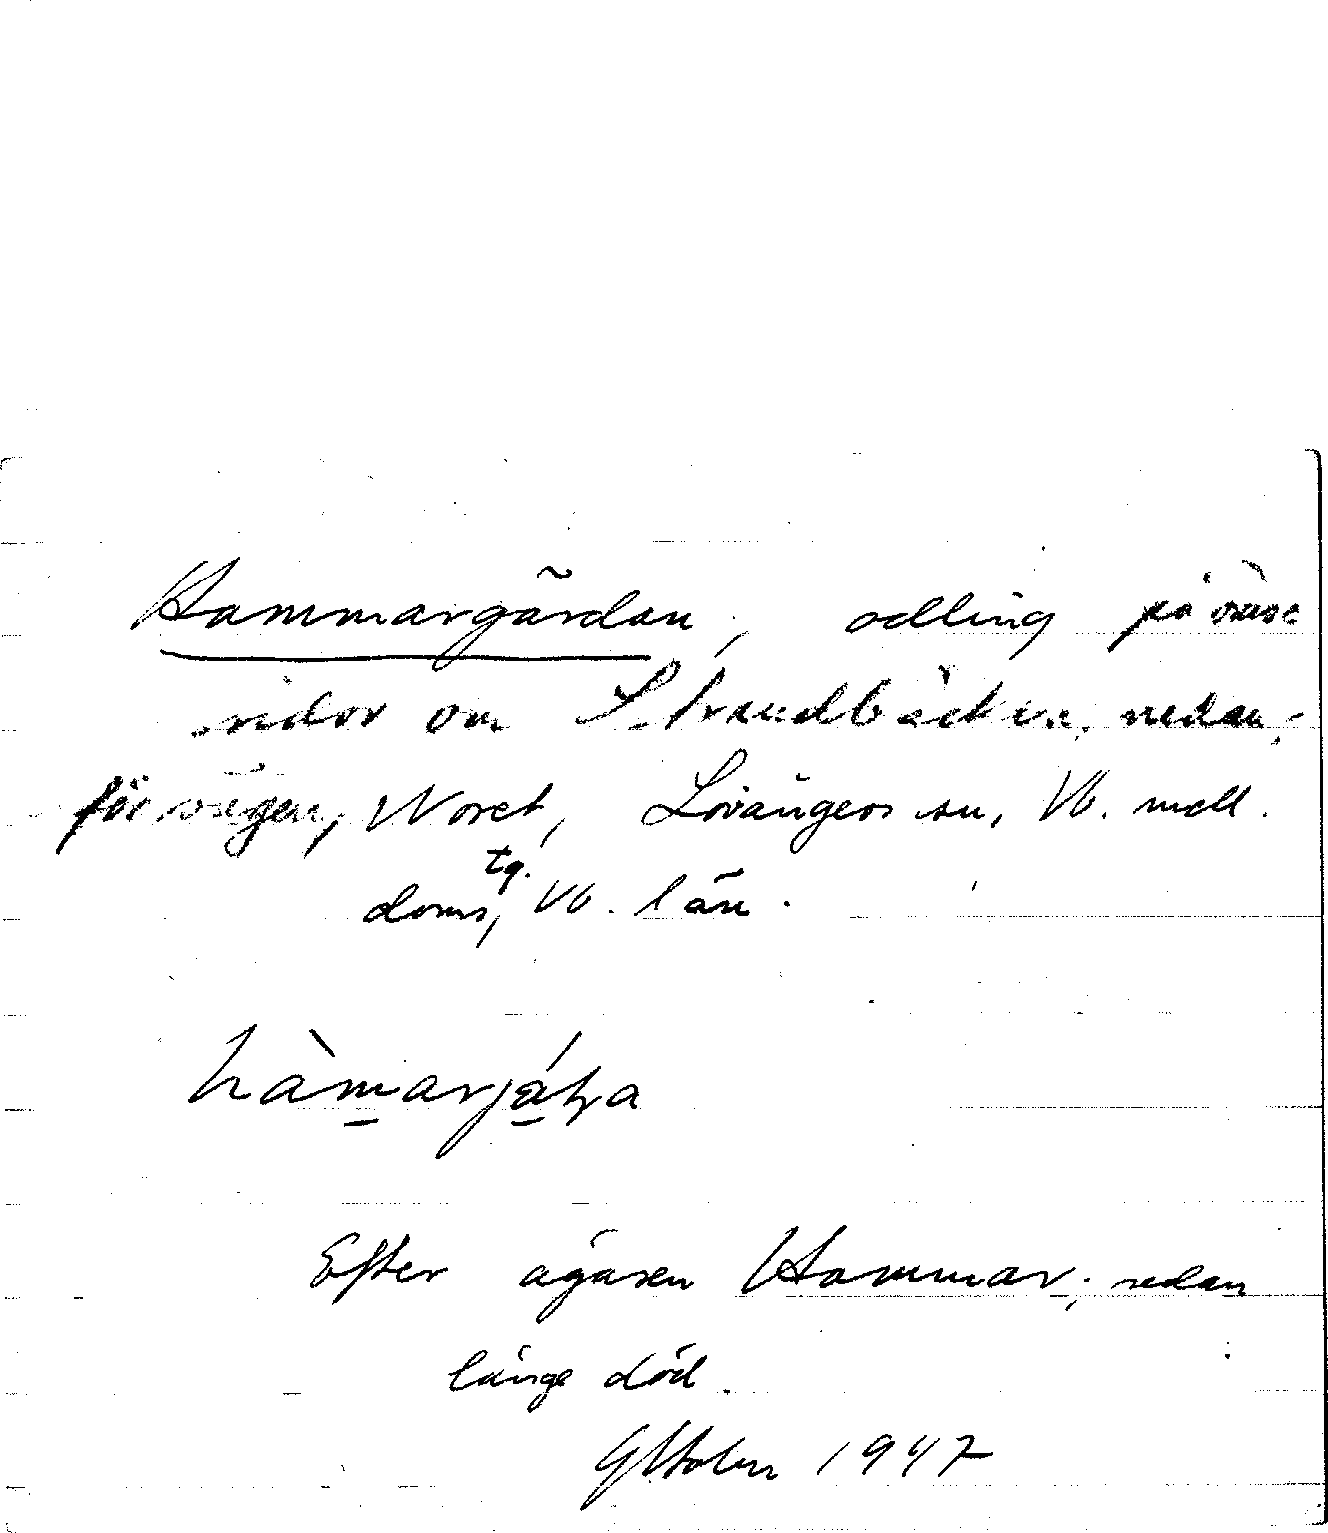 Hammargärdan, odling på ömse
sidor om Strandbäcken, nedan-
för vägen, Noret, Lövångers sn, Vb. mell.
doms tg., Vb. län.
hàmarjáḥa
Efter ägaren Hammar, sedan
länge död.
GHolm 1947